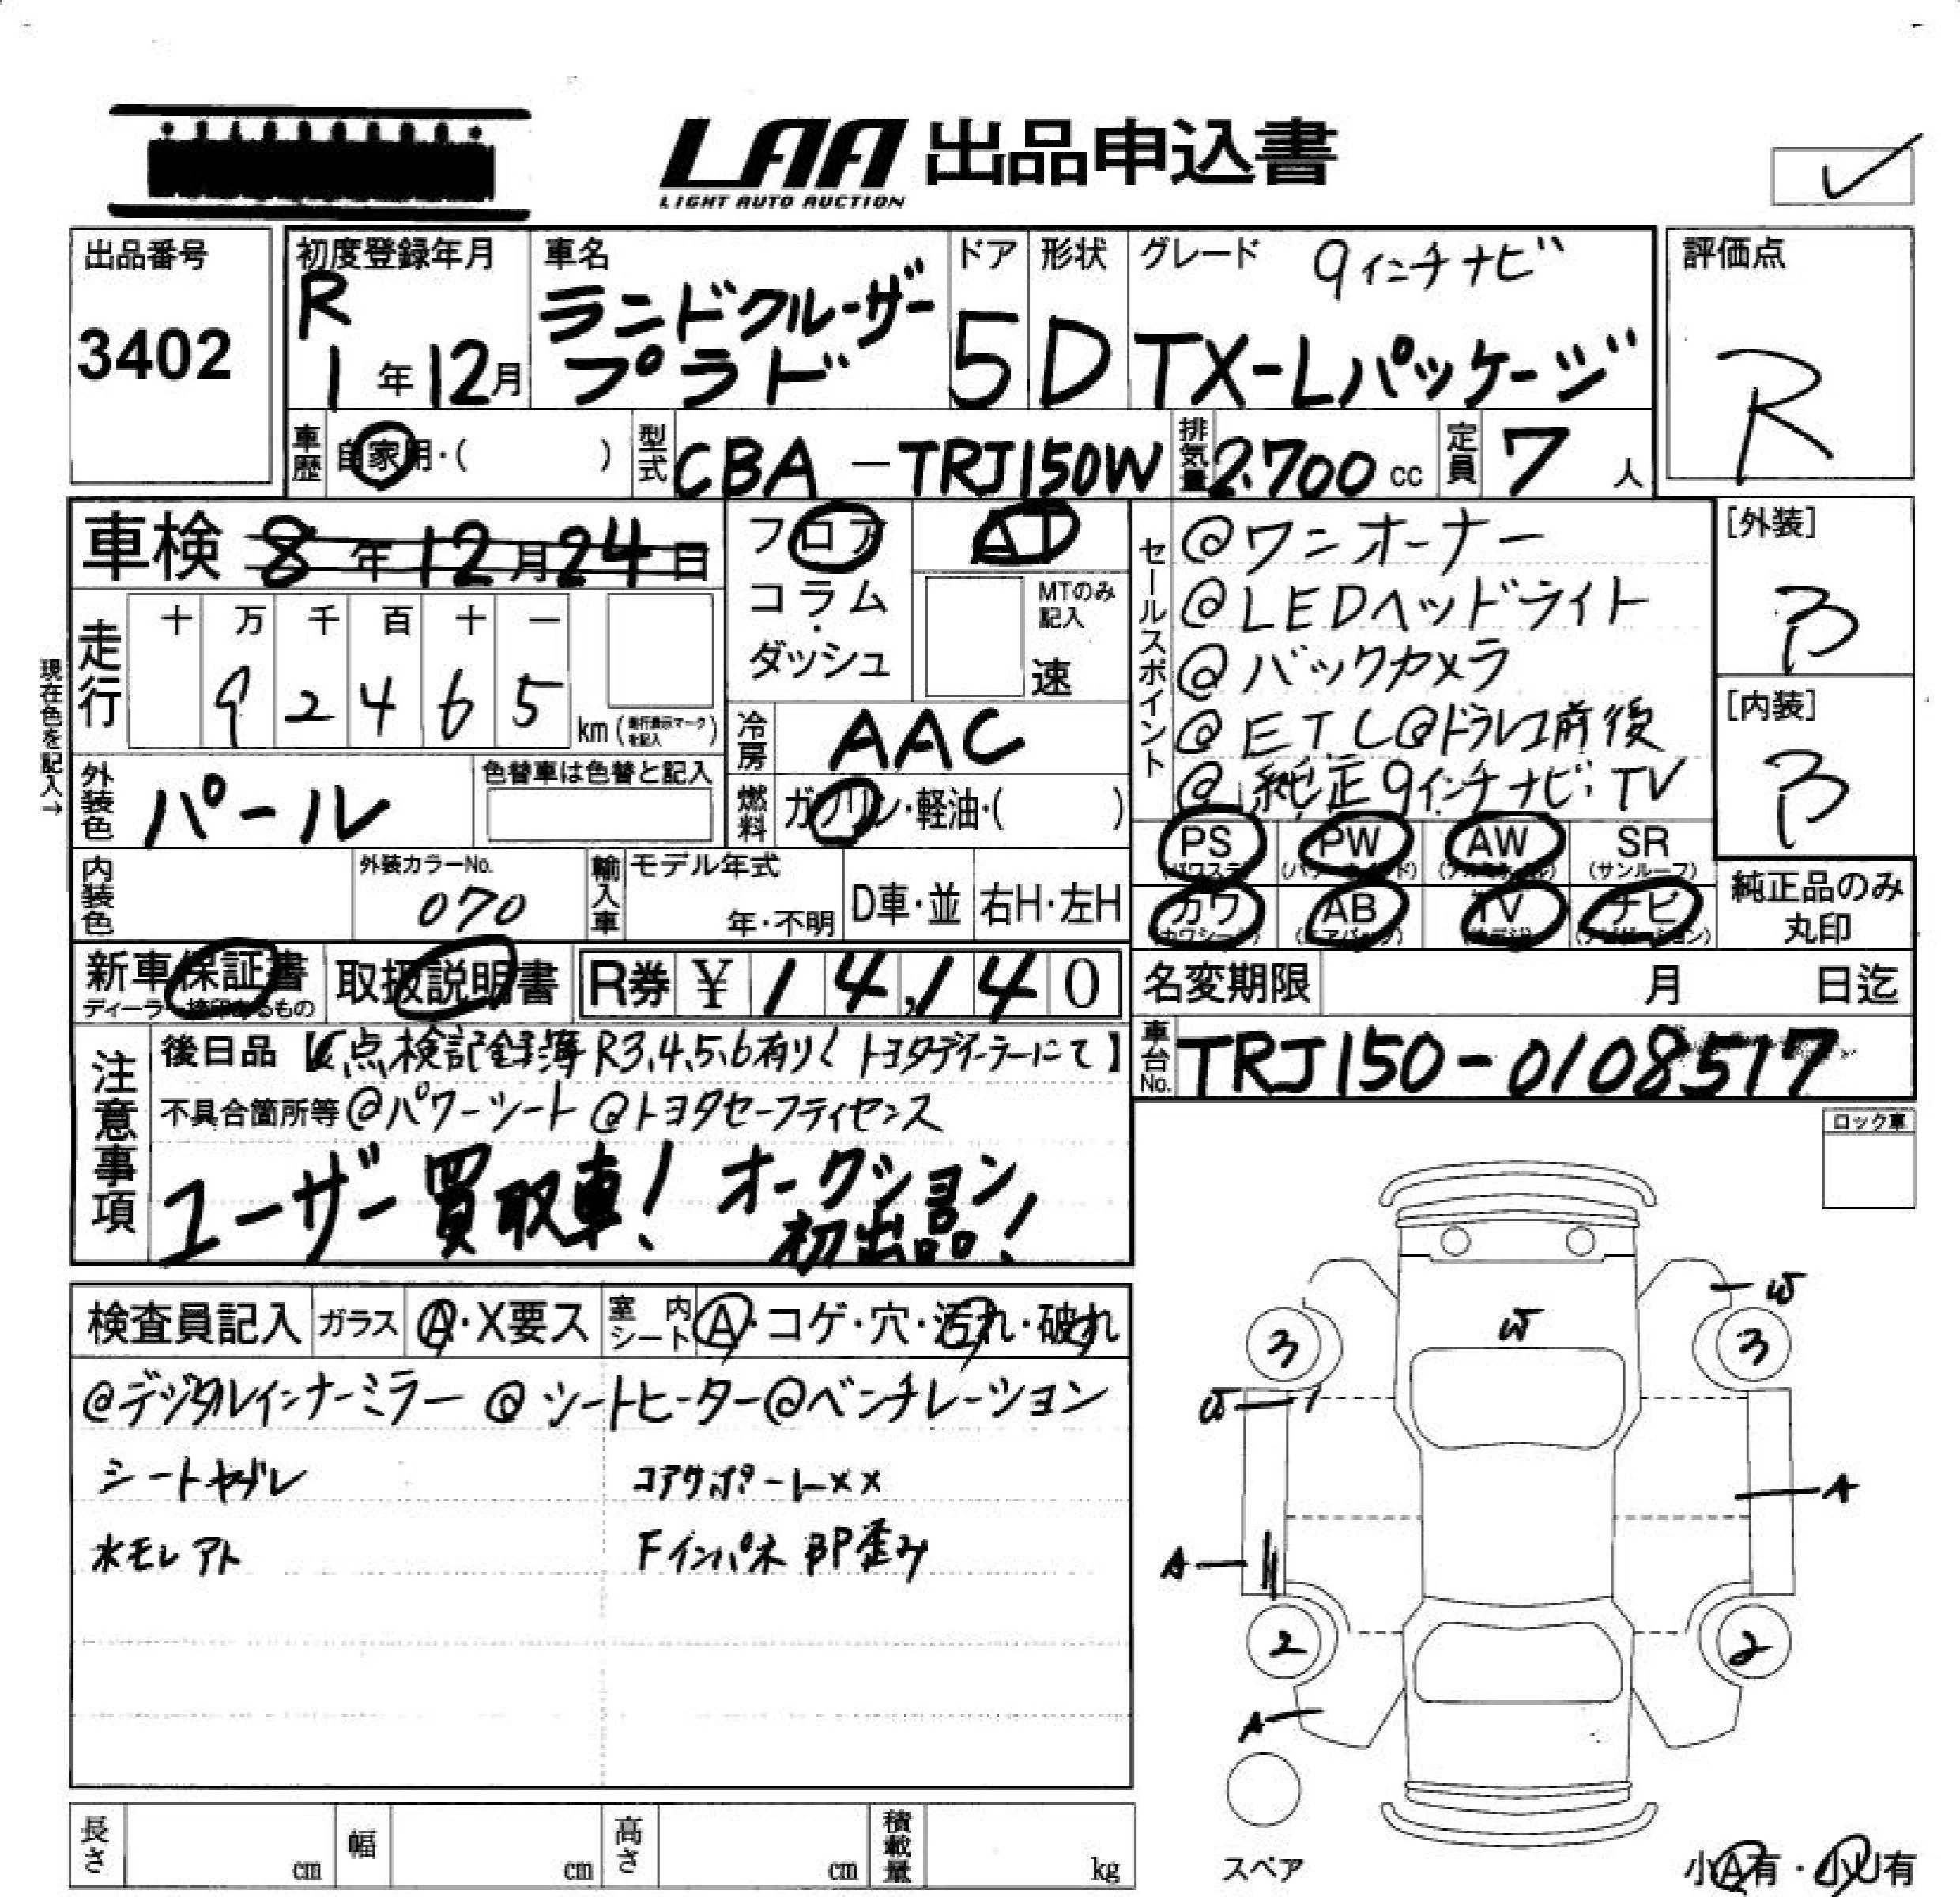 LAA 出品申込書
LIGHT AUTO AUCTION
出品番号
3402
初度登録年月
R 1 年 12 月
車名
ランドクルーザー
プラド
ドア
5
形状
D
グレード 9インチナビ
TX-Lパッケージ
評価点
R
車歴 自家用・( )
型式 CBA - TRJ150W
排気量 2.700 cc
定員 7 人
車検 8 年 12 月 24 日
フロア
コラム
・
ダッシュ
AT
MTのみ記入
速
走行
十 万 千 百 十 一
9 2 4 6 5
km (走行表示マークを記入)
現在色を記入→
冷房 AAC
外装色 パール
色替車は色替と記入
燃料 ガソリン・軽油・( )
セールスポイント
@ワンオーナー
@LEDヘッドライト
@バックカメラ
@ETC@ドラレコ前後
@純正9インチナビ・TV
[外装]
B
[内装]
B
PS PW AW SR
(パワステ) (パワーウインド) (アルミホイル) (サンルーフ)
カワ AB TV ナビ
(カワシート) (エアバッグ) (ナビゲーション)
純正品のみ
丸印
内装色
外装カラーNo.
070
輸入車
モデル年式
年・不明
D車・並
右H・左H
新車保証書
ディーラー捺印あるもの
取扱説明書
R券 ¥ 1 4,1 4 0
名変期限 月 日迄
車台No. TRJ150-0108517
注意事項
後日品【点検記録簿 R3、4、5、6有り( トヨタディーラーにて】
不具合箇所等 @パワーシート @トヨタセーフティセンス
ユーザー買取車! オークション
初出品!
ロック車
検査員記入
ガラス A・X要ス
室内シート A・コゲ・穴・汚れ・破れ
@デジタルインナーミラー @シートヒーター@ベンチレーション
シートヤブレ コアサポートXX
水モレアト Fインパネ BP歪み
W
W
3
3
W
A
A
2
2
A
スペア
小A有・小U有
長さ cm
幅 cm
高さ cm
積載量 kg